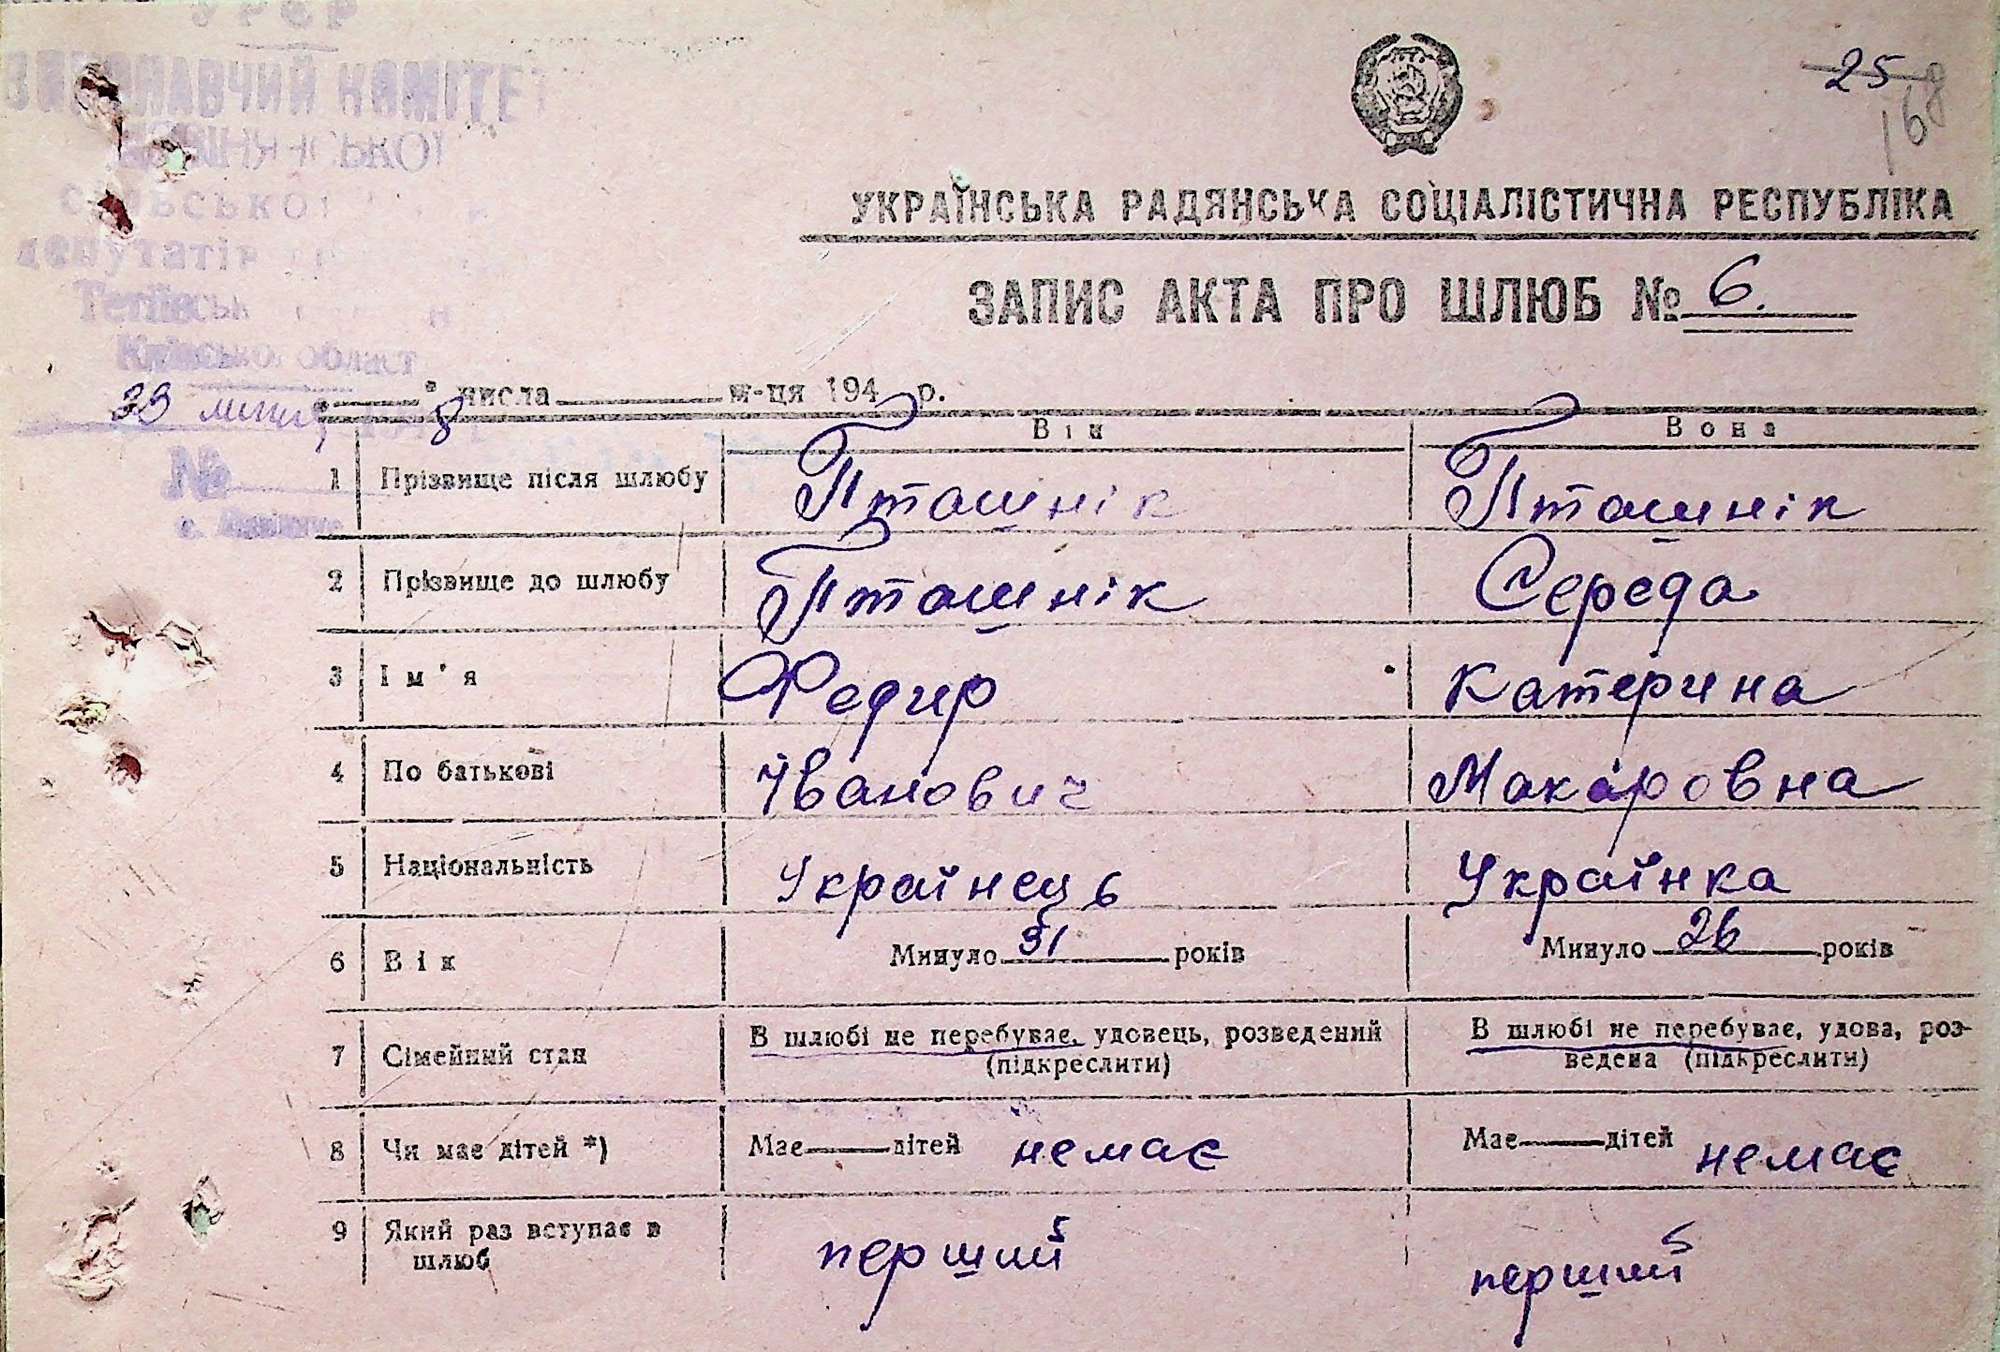 УРСР
ВИКОНАВЧИЙ КОМІТЕТ
сільської
депутатів
Тетіївськ
Київської област
25
168
УКРАЇНСЬКА РАДЯНСЬКА СОЦІАЛІСТИЧНА РЕСПУБЛІКА
ЗАПИС АКТА ПРО ШЛЮБ № 6.
числа м-ця 194 р.
липня 8
№
Він Вона
1 Прізвище після шлюбу Пташнік Пташнік
2 Прізвище до шлюбу Пташнік Середа
3 Ім'я Федир Катерина
4 По батькові Іванович Макаровна
5 Національність Українець Українка
6 Вік Минуло 31 років Минуло 26 років
7 Сімейний стан В шлюбі не перебуває, удовець, розведений В шлюбі не перебуває, удова, роз-
(підкреслити) ведена (підкреслити)
8 Чи має дітей *) Має дітей немає Має дітей немає
9 Який раз вступає в
шлюб перший перший